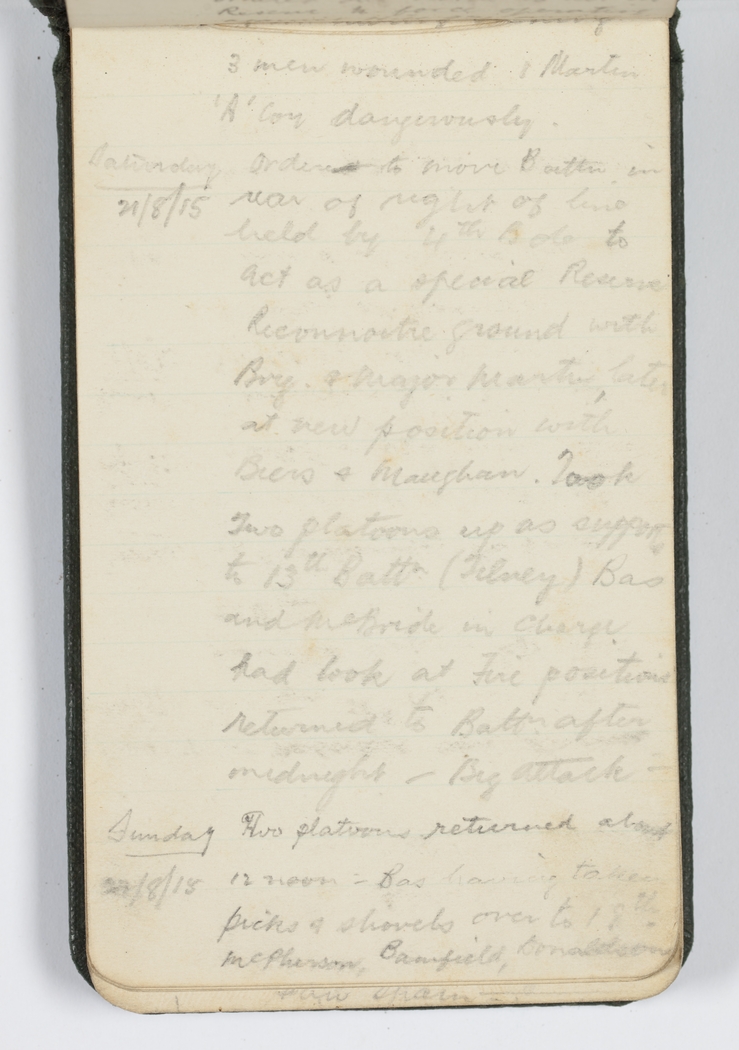 3 men wounded 1 Martin
'A' Coy dangerously.
Saturday Orders to move Battn in
21/8/15 rear of right of line
held by 4th Bde to
act as a special Reserve
Reconnoitre ground with
Brig. & Major Martin, later
at new position with
Biers & Maughan. Took
Two platoons up as support
to 13th Battn (Tilney) Bas
and McBride in charge
had look at Fire positions
returned to Battn after
midnight – Big Attack –
Sunday Two platoons returned about
22/8/15 12 noon – Bas having taken
picks & shovels over to 18th
McPherson, Bamfield, Donaldson